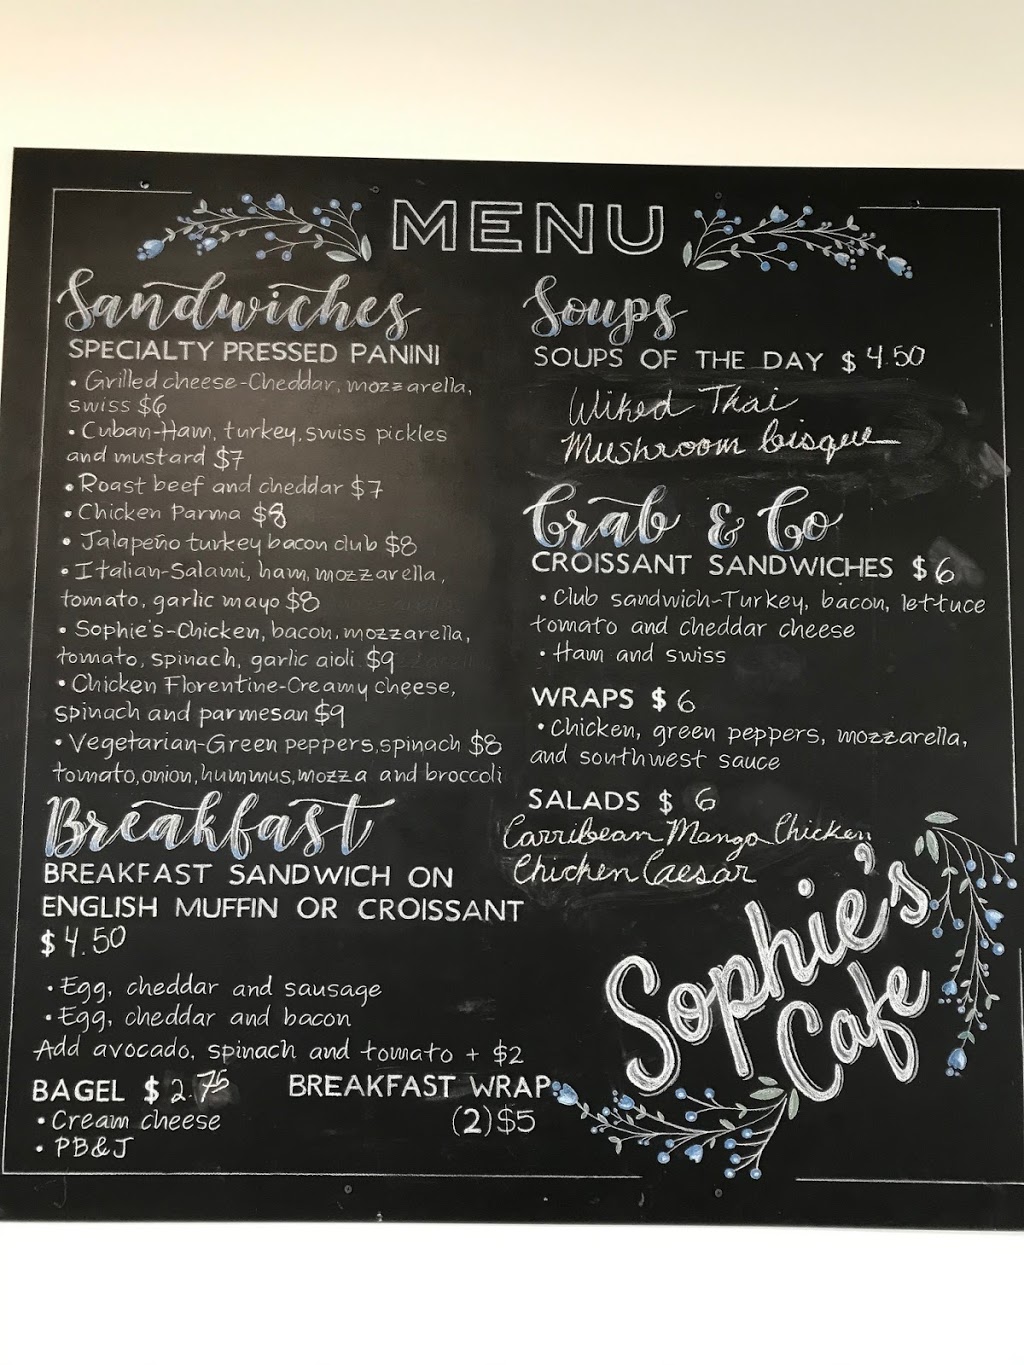 MENU
Sandwiches
SPECIALTY PRESSED PANINI
• Grilled cheese-Cheddar, mozzarella,
swiss $6
• Cuban-Ham, turkey, swiss pickles
and mustard $7
• Roast beef and cheddar $7
• Chicken Parma $8
• Jalapeño turkey bacon club $8
• Italian-Salami, ham, mozzarella,
tomato, garlic mayo $8
• Sophie's-Chicken, bacon, mozzarella,
tomato, spinach, garlic aioli $9
• Chicken Florentine-Creamy cheese,
spinach and parmesan $9
• Vegetarian-Green peppers, spinach $8
tomato, onion, hummus, mozza and broccoli
Breakfast
BREAKFAST SANDWICH ON
ENGLISH MUFFIN OR CROISSANT
$4.50
• Egg, cheddar and sausage
• Egg, cheddar and bacon
Add avocado, spinach and tomato + $2
BAGEL $2.75
• Cream cheese
• PB&J
BREAKFAST WRAP
(2) $5
Soups
SOUPS OF THE DAY $4.50
Wiked Thai
Mushroom bisque
Grab & Go
CROISSANT SANDWICHES $6
• Club sandwich-Turkey, bacon, lettuce
tomato and cheddar cheese
• Ham and swiss
WRAPS $6
• Chicken, green peppers, mozzarella,
and southwest sauce
SALADS $6
Carribean Mango Chicken
Chicken Caesar
Sophie's
Cafe